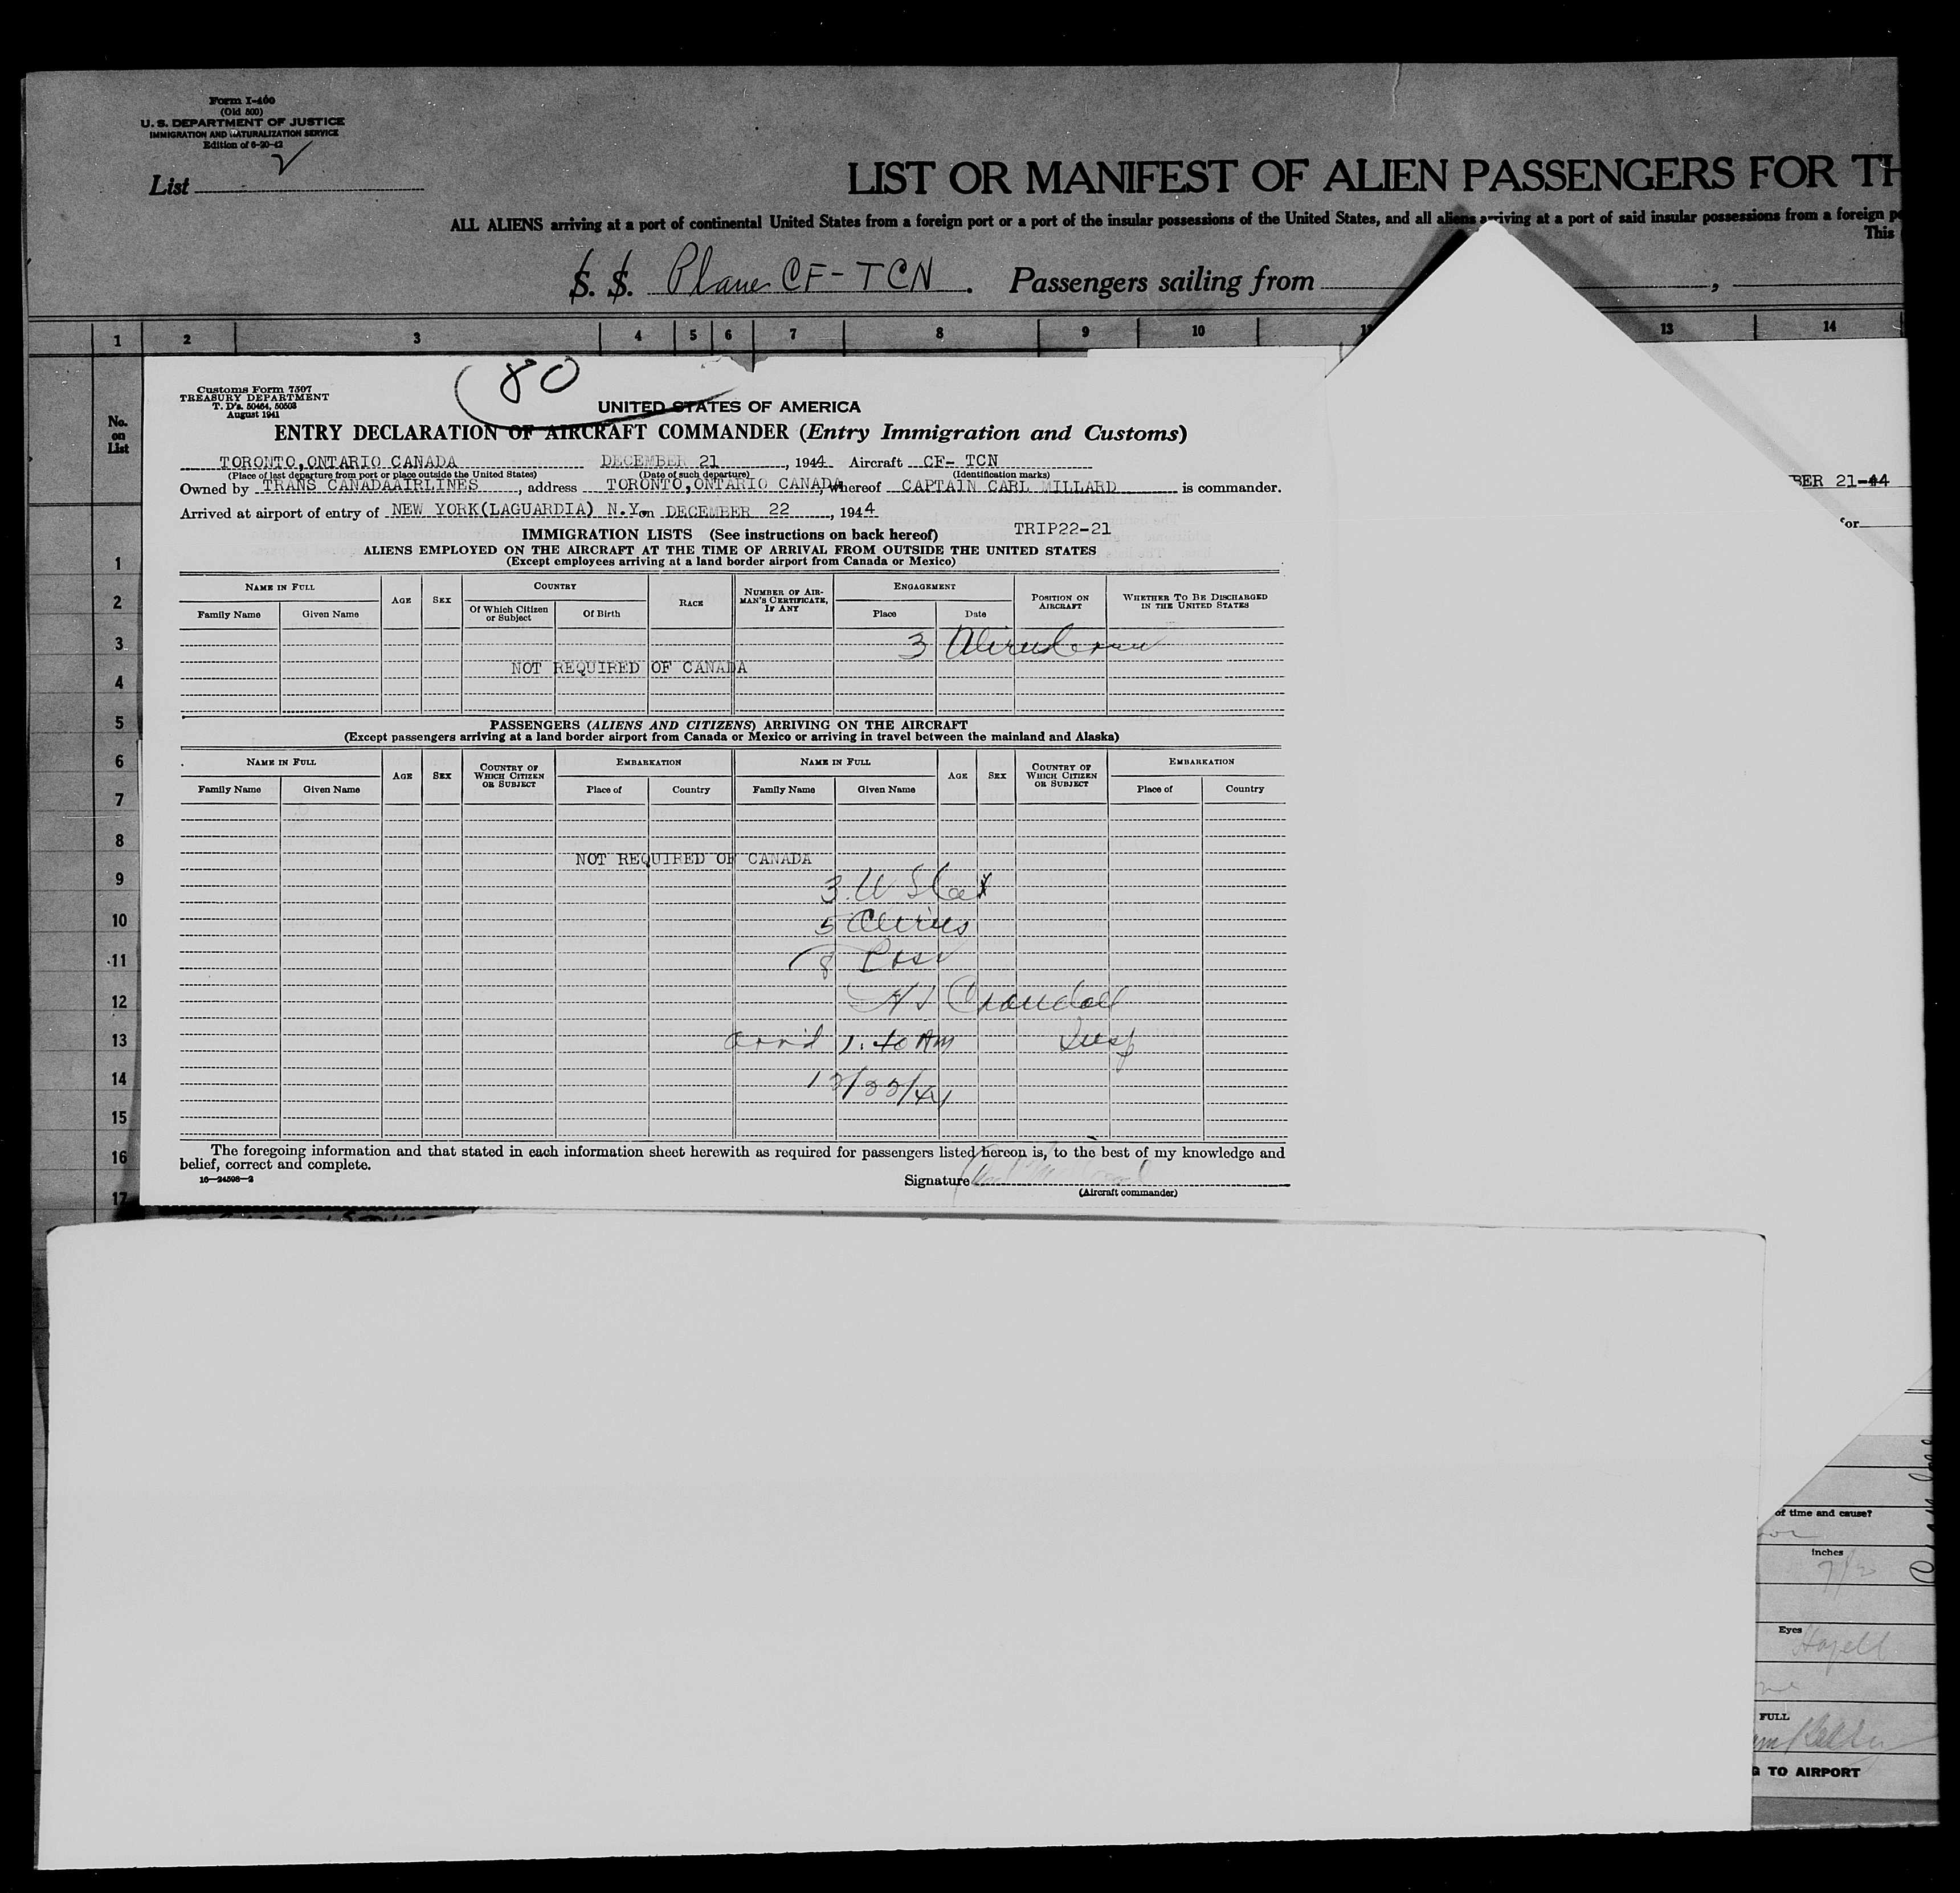 Form I-400
(Old 500)
U. S. DEPARTMENT OF JUSTICE
IMMIGRATION AND NATURALIZATION SERVICE
Edition of 6-20-42
List
LIST OR MANIFEST OF ALIEN PASSENGERS FOR TH
ALL ALIENS arriving at a port of continental United States from a foreign port or a port of the insular possessions of the United States, and all aliens arriving at a port of said insular possessions from a foreign po
This
S. S. Plane CF-TCN . Passengers sailing from ,
1 2 3 4 5 6 7 8 9 10 11 13 14
No. on List
80
Customs Form 7507
TREASURY DEPARTMENT
T. D's. 50464, 50503
August 1941
UNITED STATES OF AMERICA
ENTRY DECLARATION OF AIRCRAFT COMMANDER (Entry Immigration and Customs)
TORONTO,ONTARIO CANADA DECEMBER 21, 1944 Aircraft CF- TCN
(Place of last departure from port or place outside the United States) (Date of such departure) (Identification marks)
Owned by TRANS CANADAAIRLINES, address TORONTO,ONTARIO CANADA, whereof CAPTAIN CARL MILLARD is commander.
BER 21-44
Arrived at airport of entry of NEW YORK(LAGUARDIA) N.Y. on DECEMBER 22, 1944
for
IMMIGRATION LISTS (See instructions on back hereof) TRIP22-21
ALIENS EMPLOYED ON THE AIRCRAFT AT THE TIME OF ARRIVAL FROM OUTSIDE THE UNITED STATES
(Except employees arriving at a land border airport from Canada or Mexico)
NAME IN FULL AGE SEX COUNTRY RACE NUMBER OF AIRMAN'S CERTIFICATE, IF ANY ENGAGEMENT POSITION ON AIRCRAFT WHETHER TO BE DISCHARGED IN THE UNITED STATES
Family Name Given Name Of Which Citizen or Subject Of Birth Place Date
3
NOT REQUIRED OF CANADA
PASSENGERS (ALIENS AND CITIZENS) ARRIVING ON THE AIRCRAFT
(Except passengers arriving at a land border airport from Canada or Mexico or arriving in travel between the mainland and Alaska)
NAME IN FULL AGE SEX COUNTRY OF WHICH CITIZEN OR SUBJECT EMBARKATION NAME IN FULL AGE SEX COUNTRY OF WHICH CITIZEN OR SUBJECT EMBARKATION
Family Name Given Name Place of Country Family Name Given Name Place of Country
NOT REQUIRED OF CANADA
3
5 Aliens
8 Pass
Crandall
arr'd 1:40 AM Insp
12/22/44
The foregoing information and that stated in each information sheet herewith as required for passengers listed hereon is, to the best of my knowledge and
belief, correct and complete.
16—24598—2
Signature
(Aircraft commander)
1
2
3
4
5
6
7
8
9
10
11
12
13
14
15
16
17
of time and cause?
Inches
7 1/2
Eyes
Hazell
FULL
G TO AIRPORT